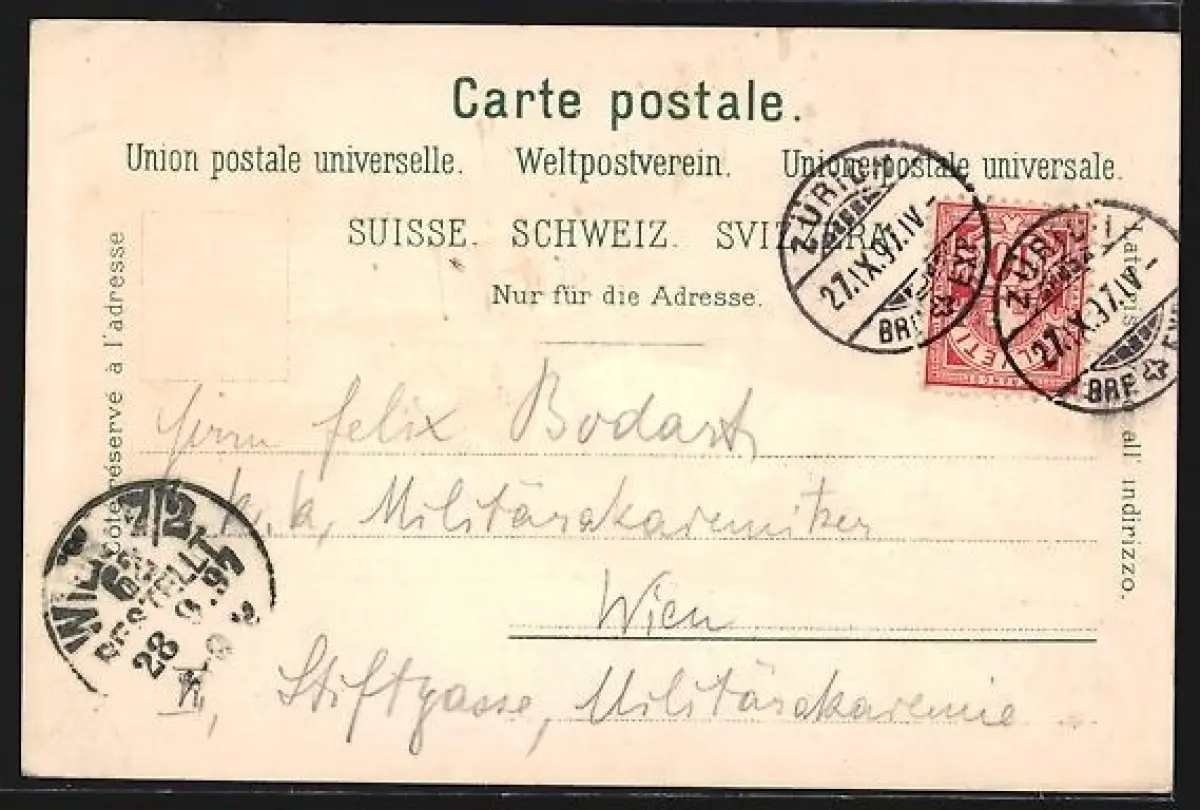 Carte postale.
Union postale universelle. Weltpostverein. Unione postale universale.
SUISSE. SCHWEIZ. SVIZZERA.
Nur für die Adresse.
côté réservé à l'adresse
all' indirizzo.
ZÜRICH
27.IX.97.IV-
BRF. EXP.
ZÜRICH
27.IX.97.IV-
BRF.
Herrn Felix Bodart
k. k. Militärakademiker
Wien
Stiftgasse, Militärakademie
WIEN 7/2
BESTELLT
28 9 97